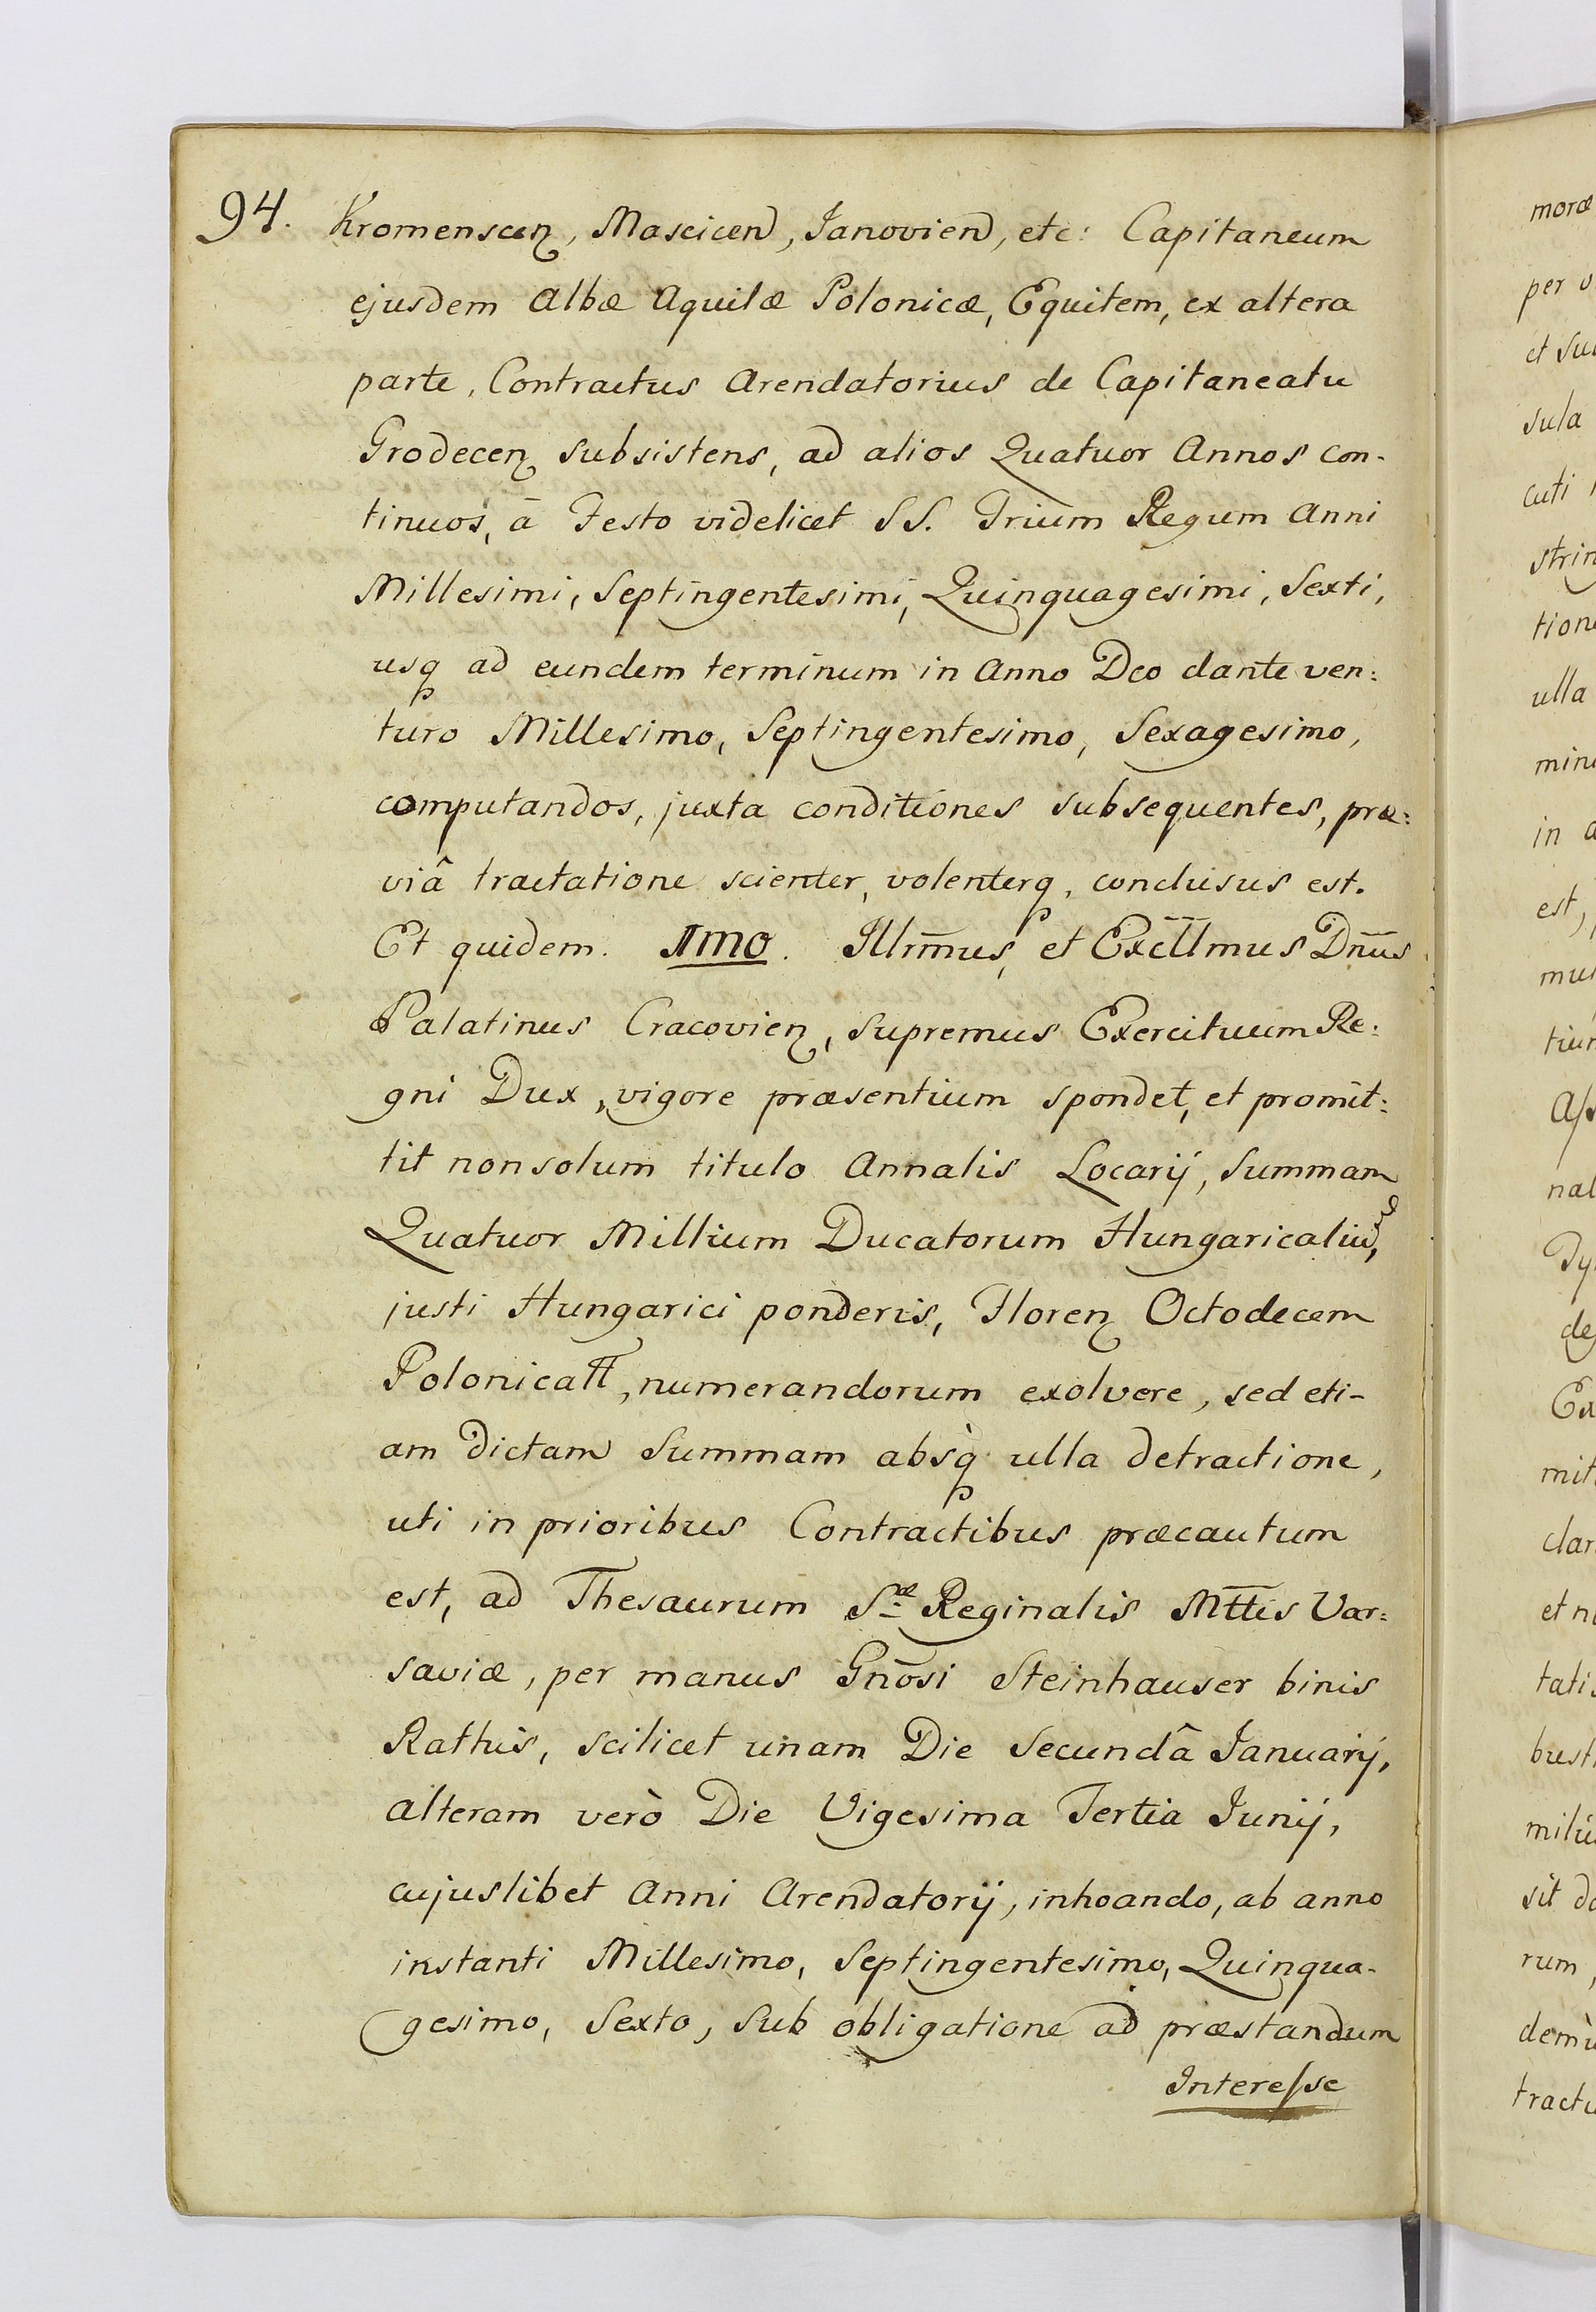 94.
Kromenscen, Mascicen, Janovien, etc: Capitaneum
ejusdem Albæ Aquilæ Polonicæ, Equitem, ex altera
parte, Contractus Arendatorius de Capitaneatu
Grodecen subsistens, ad alios Quatuor Annos con-
tinuos, ā Festo videlicet SS. Trium Regum Anni
Millesimi, Septingentesimi, Quinquagesimi, Sexti,
usq ad eundem terminum in Anno Deo dante ven:
turo Millesimo, Septingentesimo, Sexagesimo,
computandos, juxta conditiones subsequentes, præ:
viâ tractatione scienter, volenterq, conclusus est.
Et quidem. 1mo. Illm̄us, et Exc̄ll̄mus Dn̄us
Palatinus Cracovien, Supremus Exercituum Re:
gni Dux, vigore præsentium spondet, et promit:
tit non solum titulo Annalis Locarij, Summam
Quatuor Millium Ducatorum Hungaricaliu,
justi Hungarici ponderis, Floren Octodecem
Polonicall, numerandorum exolvere, sed eti-
am dictam Summam absq̀ ulla detractione,
uti in prioribus Contractibus præcautum
est, ad Thesaurum Sæ Reginalis Mt̄t̄is Var:
saviæ, per manus Gn̄osi Steinhauser binis
Rathis, scilicet unam Die Secundâ Januarij,
alteram verò Die Vigesima Tertia Junij,
cujuslibet Anni Arendatorij, inhoando, ab anno
instanti Millesimo, Septingentesimo, Quinqua-
gesimo, Sexto, Sub obligatione ad præstandum
Interesse
moræ
per
et
sula
cuti
tion
ulla
in
est,
nal
de
mit
clar
et
tati
sit
rum